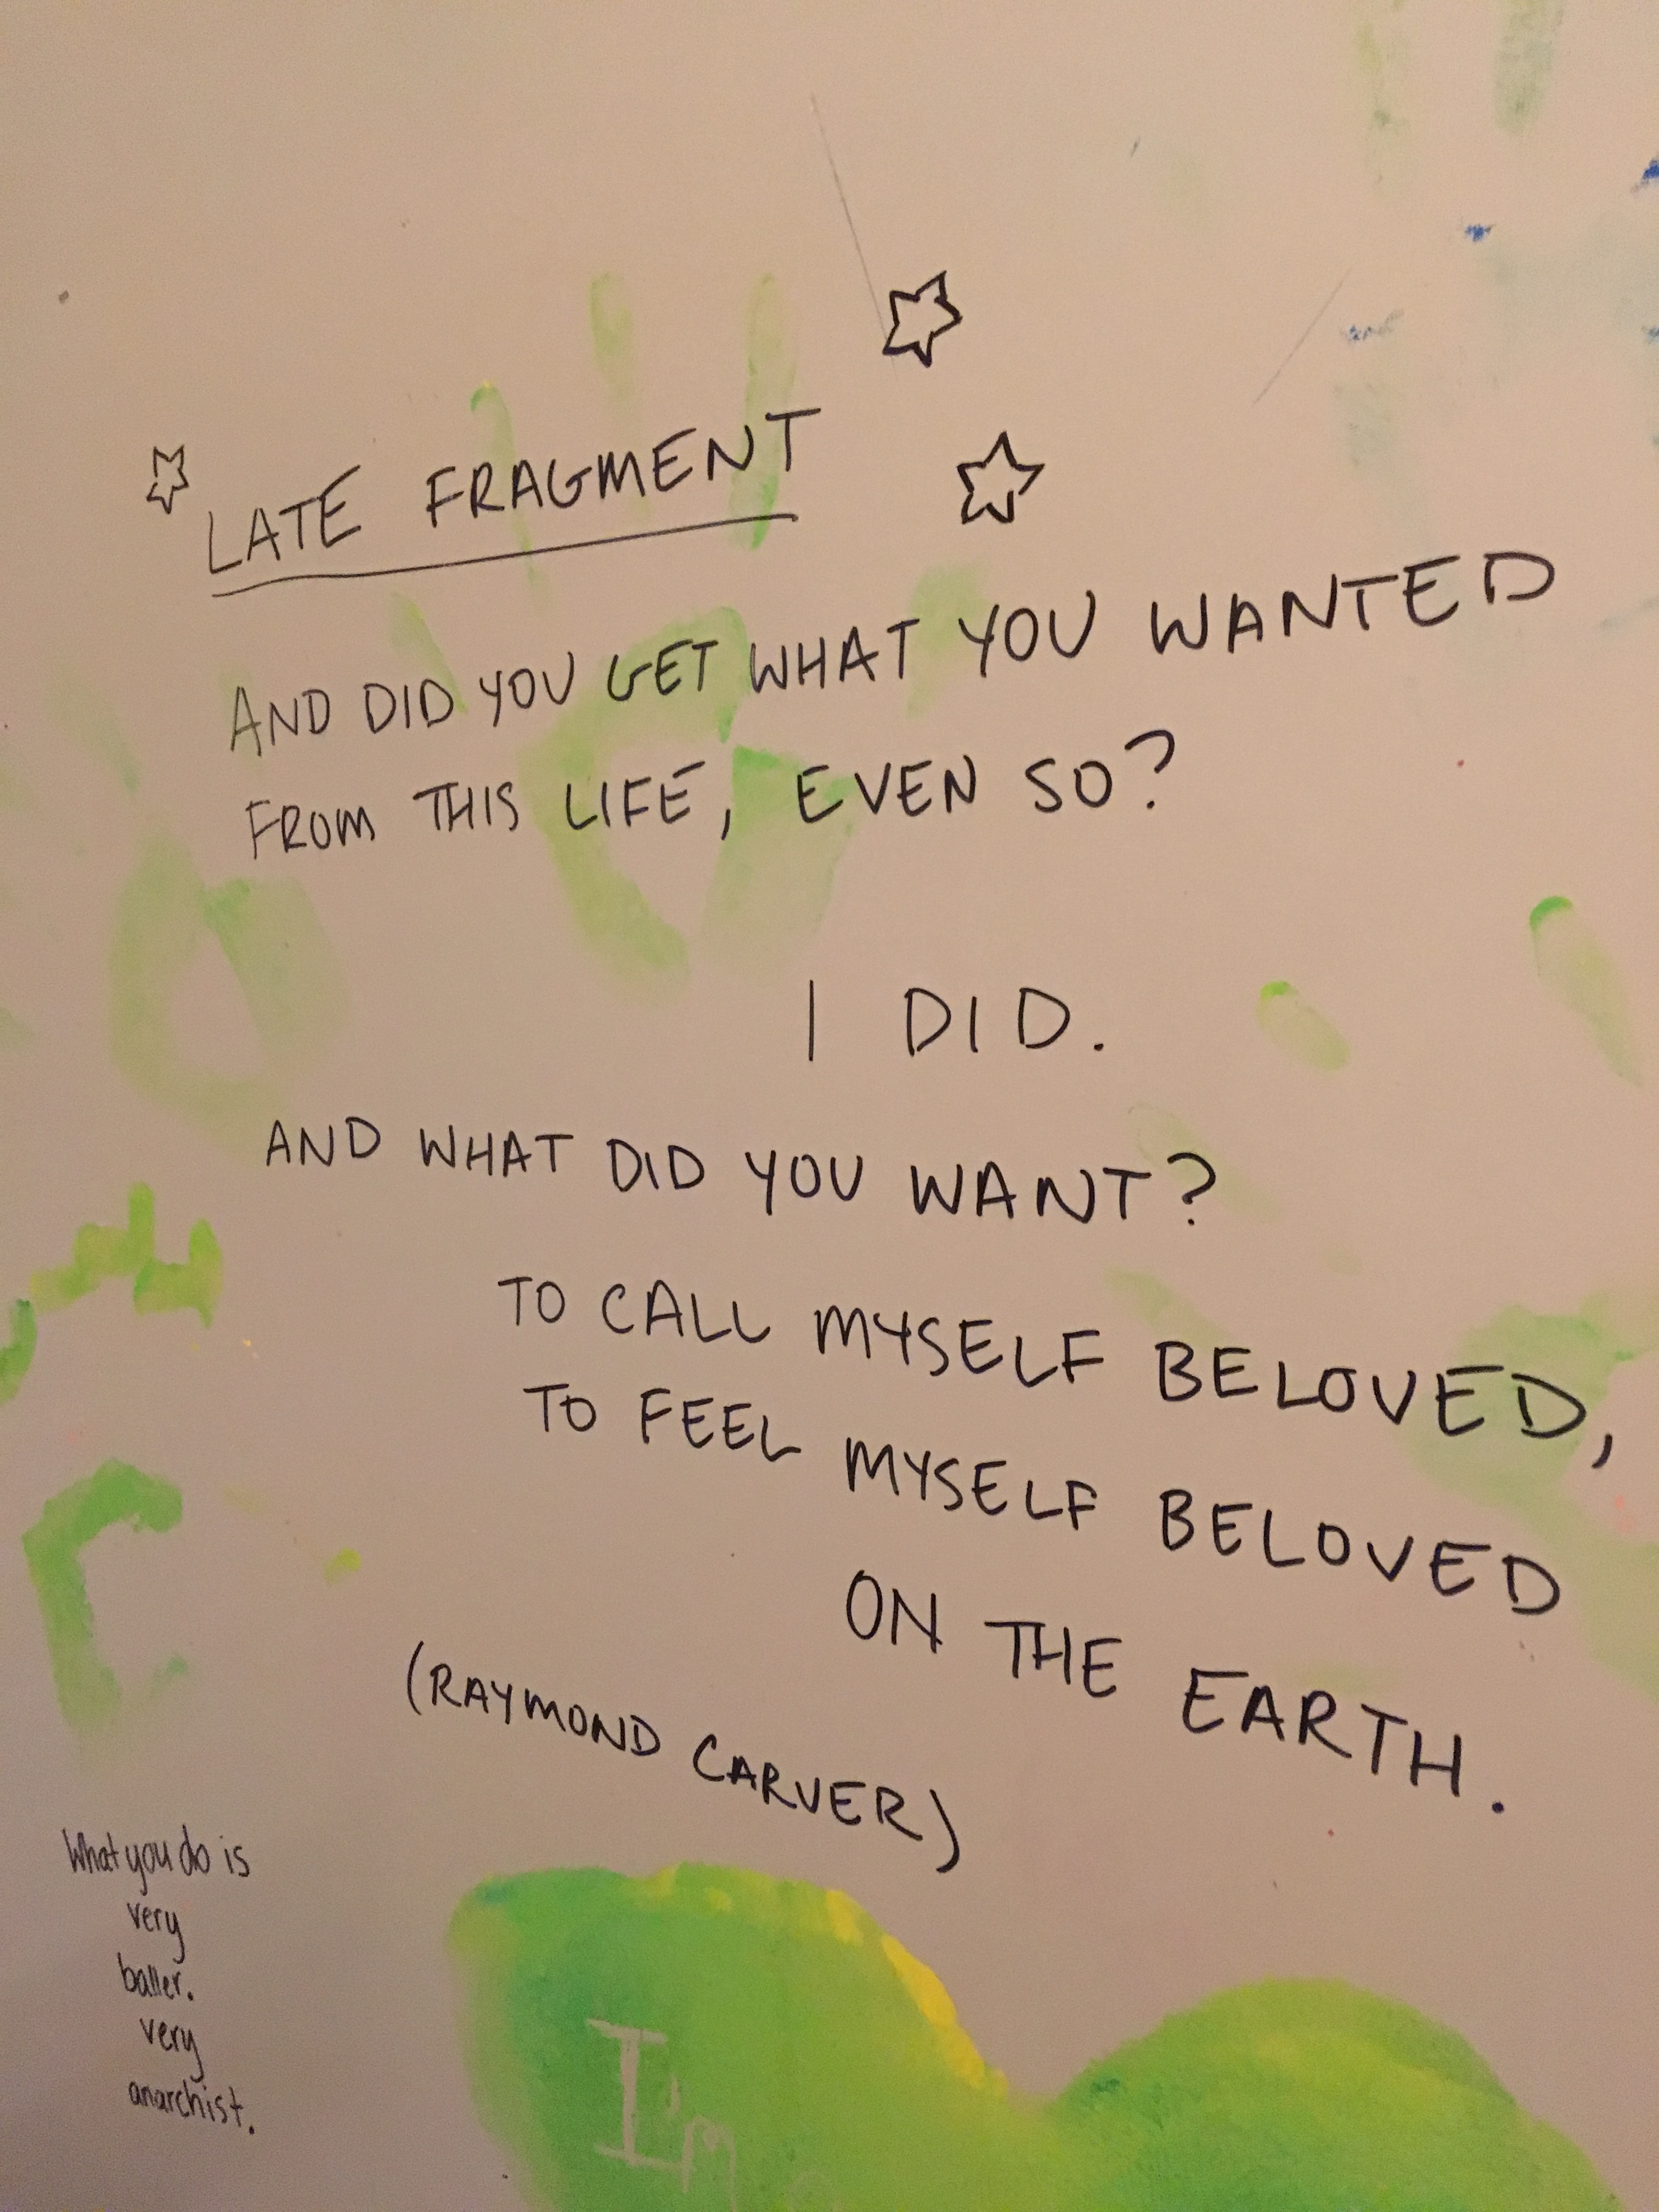 LATE FRAGMENT
AND DID YOU GET WHAT YOU WANTED
FROM THIS LIFE, EVEN SO?
I DID.
AND WHAT DID YOU WANT?
TO CALL MYSELF BELOVED,
TO FEEL MYSELF BELOVED
ON THE EARTH.
(RAYMOND CARVER)
What you do is
very
baller.
very
anarchist.
I'm